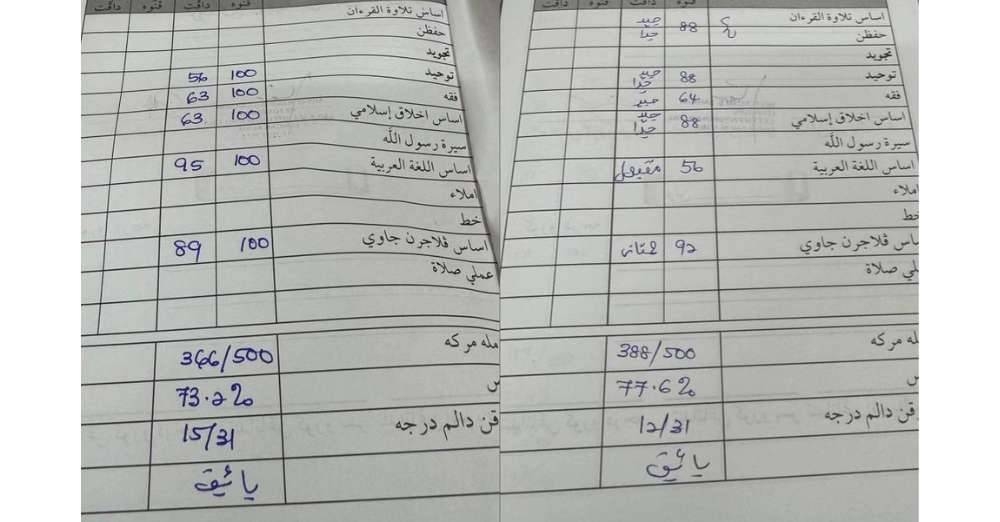 ڤنوه داڤت ڤنوه داڤت
اساس تلاوة القرءان
حفظن
تجويد
توحيد 100 56
فقه 100 63
اساس اخلاق إسلامي 100 63
سيرة رسول الله
اساس اللغة العربية 100 95
املاء
خط
اساس ڤلاجرن جاوي 100 89
عملي صلاة
مله مركه 366/500
س 73.2%
قن دالم درجه 15/31
يائيق
ڤنوه داڤت ڤنوه داڤت
اساس تلاوة القرءان 88 جيد جدّا
حفظن
تجويد
توحيد 88 جيد جدّا
فقه 64 جيد
اساس اخلاق إسلامي 88 جيد جدّا
سيرة رسول الله
اساس اللغة العربية 56 مقبول
املاء
خط
ساس ڤلاجرن جاوي 92 ممتاز
ملي صلاة
له مركه 388/500
س 77.6%
قن دالم درجه 12/31
يائيق